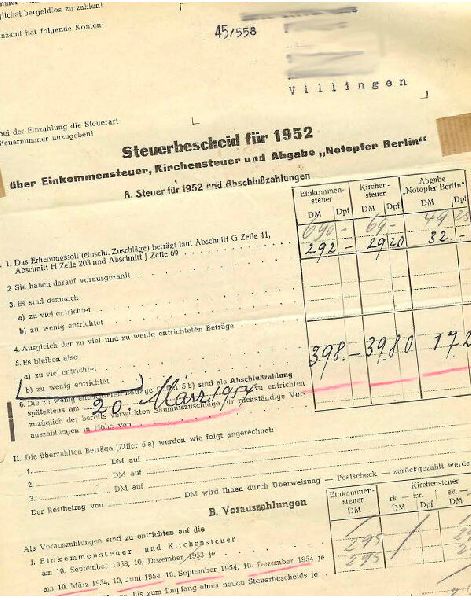 zu zahlen!
hat folgende Konten
45/558
Villingen
L
bei der Einzahlung die Steuerart
Steuernummer anzugeben!
Steuerbescheid für 1952
über Einkommensteuer, Kirchensteuer und Abgabe „Notopfer Berlin"
A. Steuer für 1952 und Abschlußzahlungen
Einkommen-
steuer Kirchen-
steuer Abgabe
Notopfer Berlin"
DM Dpf DM Dpf DM Dpf
690 - 69 -
1. Das Erhebungssoll (einschl. Zuschläge) beträgt laut Abschnitt G Zeile 41, 292 - 29 20 32 -
Abschnitt H Zeile 203 und Abschnitt J Zeile 69
2. Sie haben darauf vorausgezahlt
3. Es sind demnach
a) zu viel entrichtet
b) zu wenig entrichtet
4. Ausgleich der zu viel und zu wenig entrichteten Beträge
5. Es bleiben also
a) zu viel entrichtet
b) zu wenig entrichtet 398.- 39 80 172
6. Die zu wenig Beträge 5 b) sind als Abschlußzahlung
spätestens am 20. März 1954 zu entrichten
II. Die überzahlten Beträge (Ziffer 5 a) wurden wie folgt angerechnet
1. DM auf
2. DM auf
3. DM auf
Der Restbetrag von DM wird Ihnen durch Überweisung — Postscheck — zurückgezahlt
B. Vorauszahlungen
Einkommen-
steuer Kirchensteuer
DM DM DM
Als Vorauszahlungen sind zu entrichten auf die
1. Einkommensteuer und Kirchensteuer
am 10. September 1953, 10. Dezember 1953 je
am 10. März 1954, 10. Juni 1954, 10. September 1954, 10. Dezember 1954 je
bis zum Empfang eines neuen Steuerbescheids je